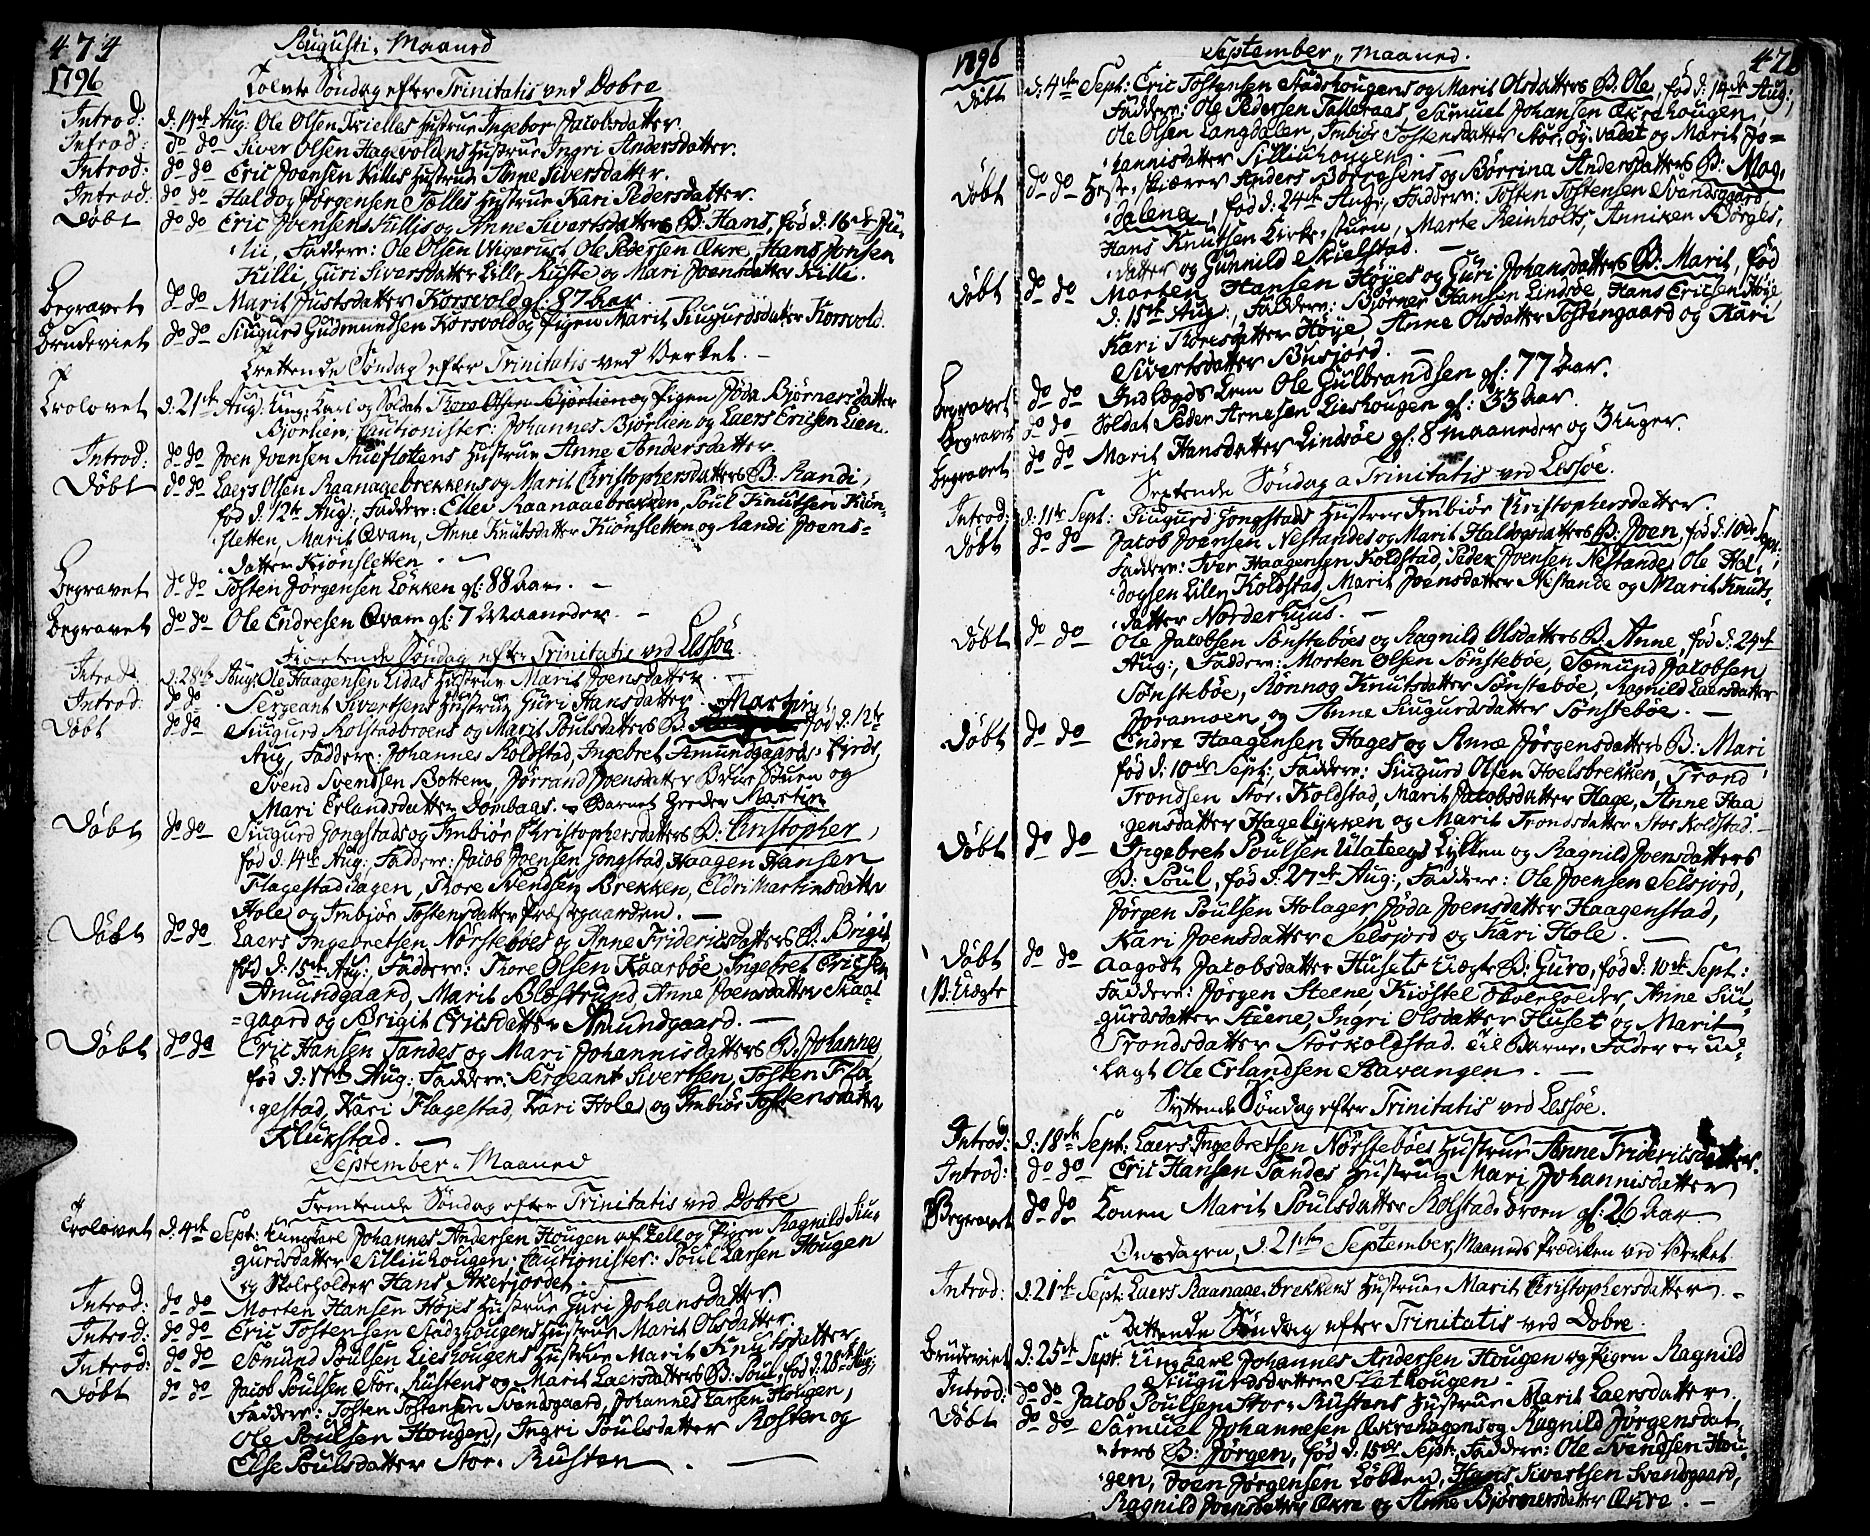 474
Augusti, Maaned
1796
Tolvte Søndag efter Trinitatis ved Dobre
Introd: d: 14de Aug: Ole Olsen Hustrue Ingebor Jacobsdatter
Introd: do do Siver Olsen Hagevoldens Hustrue Ingri Andersdatter.
Introd: do do Eric Joensen Killis Hustrue Anne Siversdatter.
Introd: do do Haldog Jørgensen Tølles Hustrue Kari Pedersdatter.
Døbt do do Eric Joensens Killis og Anne Sivertsdatters B: Hans, fød d: 16de Ju-
lii, Faddere: Ole Olsen Vigerust, Ole Pedersen Ækre, Hans Jonsen
Killi, Guri Siversdatter Lille Ruste og Mari Joensdatter Killi.
Begravet do do Marit Justsdatter Korsvold gl: 87 Aar.
Brudeviet do do Siugurd Gudmundsen Korsvold og Pigen Marit Siugurdsdatter Korsvold.
Trettende Søndag efter Trinitatis ved Verket. -
Trolovet d: 21de Aug: Ung: Karl og Soldat Thore Olsen Bjørlien og Pigen Jøda Bjørnersdatter
Bjørlien, Cautionister: Johannes Bjørlien og Laers Ericsen Lien.
Introd: do do Joen Joensen Stueflotens Hustrue Anne Andersdatter.
Døbt do do Laers Olsen Raanaaebrekkens og Marit Christophersdatters B: Randi,
fød d: 12te Aug:, Faddere: Ellev Raanaaebrekken, Poul Knutsen Kiøn-
sletten, Marit Qvam, Anne Knutsdatter Kiønsletten og Randi Joens-
datter Kiønsletten. -
Begravet do do Tosten Jørgensen Løkken gl: 88 Aar. -
Begravet do do Ole Endresen Qvam gl: 7 Maaneder. -
Fiortende Søndag efter Trinitatis ved Lessøe.
Introd: d: 28de Aug: Ole Haagensen Lidas Hustrue Marit Joensdatter.
Introd: do do Sergeant Sivertsens Hustrue Guri Hansdatter.
Døbt do do Siugurd Rolstadbroens og Marit Poulsdatters B: Martin fød d: 12te
Aug, Faddere: Johannes Koldstad, Ingebret Amundgaards-
Svend Svendsen Bottem, Jørrand Joensdatter Brue Stuen og
Mari Erlandsdatter Dombaas. - Barnet heeder Martin
Døbt do do Siugurd Jongstads og Imbiør Christophersdatters B: Christopher,
fød d: 14de Aug: Faddere: Jacob Joensen Jongstad, Haagen Hansen
Flagestadhagen, Thore Svendsen Brekken, Eldri Martinsdatter
Hole og Imbiør Tostensdatter Præstegaarden. -
Døbt do do Laers Ingebretsen Nørstebøes og Anne Fridericsdatters B: Brigit
fød d: 15de Aug:, Faddere: Thore Olsen Kaarbøe, Ingebret Ericsen
Amundgaard, Marit Bløstrund, Anne Joensdatter Skaat-
gaard og Brigit Ericsdatter Amundgaard. -
Døbt do do Eric Hansen Tandes og Mari Johannisdatters B: Johannes,
fød d: 17de Aug: Faddere: Sergeant Sivertsen, Tosten Fla-
gestad, Kari Flagestad, Kari Hole og Imbiør Tostensdatter
Klukstad. -
September Maaned
Femtende Søndag efter Trinitatis ved Dobre
Trolovet d: 4de Sept: Ung Carl Johannes Andersen Hougen af Lell og Pigen Ragnild Siu-
gurdsdatter Silliuhougen, Cautionister: Poul Larsen Hougen
og Skoleholder Hans Akerjordet. -
Introd: do do Morten Hansen Højes Hustrue Guri Johansdatter.
Introd: do do Eric Tostensen Stadshougens Hustrue Marit Olsdatter.
Introd: do do Sæmund Poulsen Lieshougens Hustrue Marit Knutsdatter.
Døbt do do Jacob Poulsen Stor-Rustens og Marit Laersdatters B: Poul, fød d: 28de Aug:
Faddere: Tosten Tostensen Svendsgaard, Johannes Larsen Hougen,
Ole Poulsen Hougen, Ingri Poulsdatter Rosten og
Else Poulsdatter Stor-Rusten. -
1796
September Maaned.
Døbt d: 4de Sept: Eric Tostensen Stadshougens og Marit Olsdatters B: Ole, fød d: 14de Aug:,
Faddere: Ole Pedersen Talleraas, Samuel Johansen Ækrehougen,
Ole Olsen Langdalen, Imbiør Tostensdatter Stor og Marit Jo-
hannisdatter Silliuhougen. -
Døbt do do Heste-skiærer Anders Børresens og Børrina Andersdatters B: Mag-
dalena, fød d: 24de Aug:, Faddere: Tosten Tostensen Svendsgaard
Hans Knutsen Kirkestuen, Marte Reinholts, Anniken Børges-
datter og Gunnild Skielstad. -
Døbt do do Morten Hansen Høyes og Guri Johansdatters B: Marit, fød
d: 15de Aug:, Faddere: Bjørner Hansen Lindsøe, Hans Ericsen Høye,
Kari Thoresdatter Høye, Anne Olsdatter Tostengaard og Kari
Sivertsdatter Busjord. -
Begravet do do Indlægds Lem Ole Gulbrandsen gl: 77 Aar.
Begravet do do Soldat Peder Arnesen Lieshougen gl: 33 Aar.
Begravet do do Marit Hansdatter Lindsøe gl: 8 Maaneder og 3 Uger.
Sextende Søndag a Trinitatis ved Lessøe.
Introd: d: 11te Sept: Siugurd Jongstads Hustrue Imbiør Christophersdatter.
Døbt do do Jacob Joensen Nestandes og Marit Haldogsdatters B: Joen, fød d: 10de Sept:
Faddere: Iver Haagensen Koldstad, Peder Joensen Nestande, Ole Hal-
dogsen Lille Koldstad, Marit Joensdatter Nestande og Marit Knuts-
datter Norderhuus. -
Døbt do do Ole Jacobsen Sønstebøes og Ragnild Olsdatters B: Anne, fød d: 24de
Aug:, Faddere: Morten Olsen Sønstebøe, Sæmund Jacobsen
Sønstebøe, Rønnog Knutsdatter Sønstebøe, Ragnild Laersdatter
Joramoen og Anne Siugurdsdatter Sønstebøe. -
Døbt do do Endre Haagensen Hages og Anne Jørgensdatters B: Mari
fød d: 10de Sept: Faddere: Siugurd Olsen Hoelsbrekken, Trond
Trondsen Stor-Koldstad, Marit Jacobsdatter Hage, Anne Haa
gensdatter Hagelykken og Marit Trondsdatter Stor Koldstad. -
Døbt do do Ingebret Poulsen Ulateegs Lykken og Ragnild Joensdatters
B: Poul, fød d: 27de Aug:, Faddere: Ole Joensen Selsjord,
Jørgen Poulsen Holager, Jøda Joensdatter Haagenstad,
Kari Joensdatter Selsjord og Kari Hole. -
Døbt do do Aagodt Jacobsdatter Husets Uægte B: Guro, fød d: 10de Sept:
N: Uægte Faddere: Jørgen Steene, Kiøstel Skoleholder, Anne Siu-
gurdsdatter Steene, Ingri Olsdatter Huset og Marit
Trondsdatter Storkoldstad. Til Barne-Fader er ud-
lagt Ole Erlandsen Stavangen. -
Syttende Søndag efter Trinitatis ved Lessøe.
Introd: d: 18de Sept: Laers Ingebretsen Nørstebøes Hustrue Anne Fridericsdatter.
Introd: do do Eric Hansen Tandes Hustrue Mari Johannisdatter
Begravet do do Konen Marit Poulsdatter Rolstad-broen gl: 26 Aar.
Onsdagen, d: 21de September, Maaneds Prædiken ved Verket.
Introd: d: 21de Sept: Laers Raanaaebrekkens Hustrue Marit Christophersdatter. -
Attende Søndag efter Trinitatis ved Dobre.
Brudeviet d: 25de Sept: Ung Carl Johannes Andersen Hougen og Pigen Ragnild
Siugurdsdatter Skethougen -
Introd: do do Jacob Poulsen Stor-Rustens Hustrue Marit Laersdatter.
Døbt do do Samuel Johannesen Ækrehagens og Ragnild Jørgensdat-
ters B: Jørgen, fød d: 15de Sept:, Faddere: Ole Svendsen Hou-
gen, Joen Jørgensen Løkken, Hans Sivertsen Svendsgaard,
Ragnild Joensdatter Ækre og Anne Bjørnersdatter Ækre. -